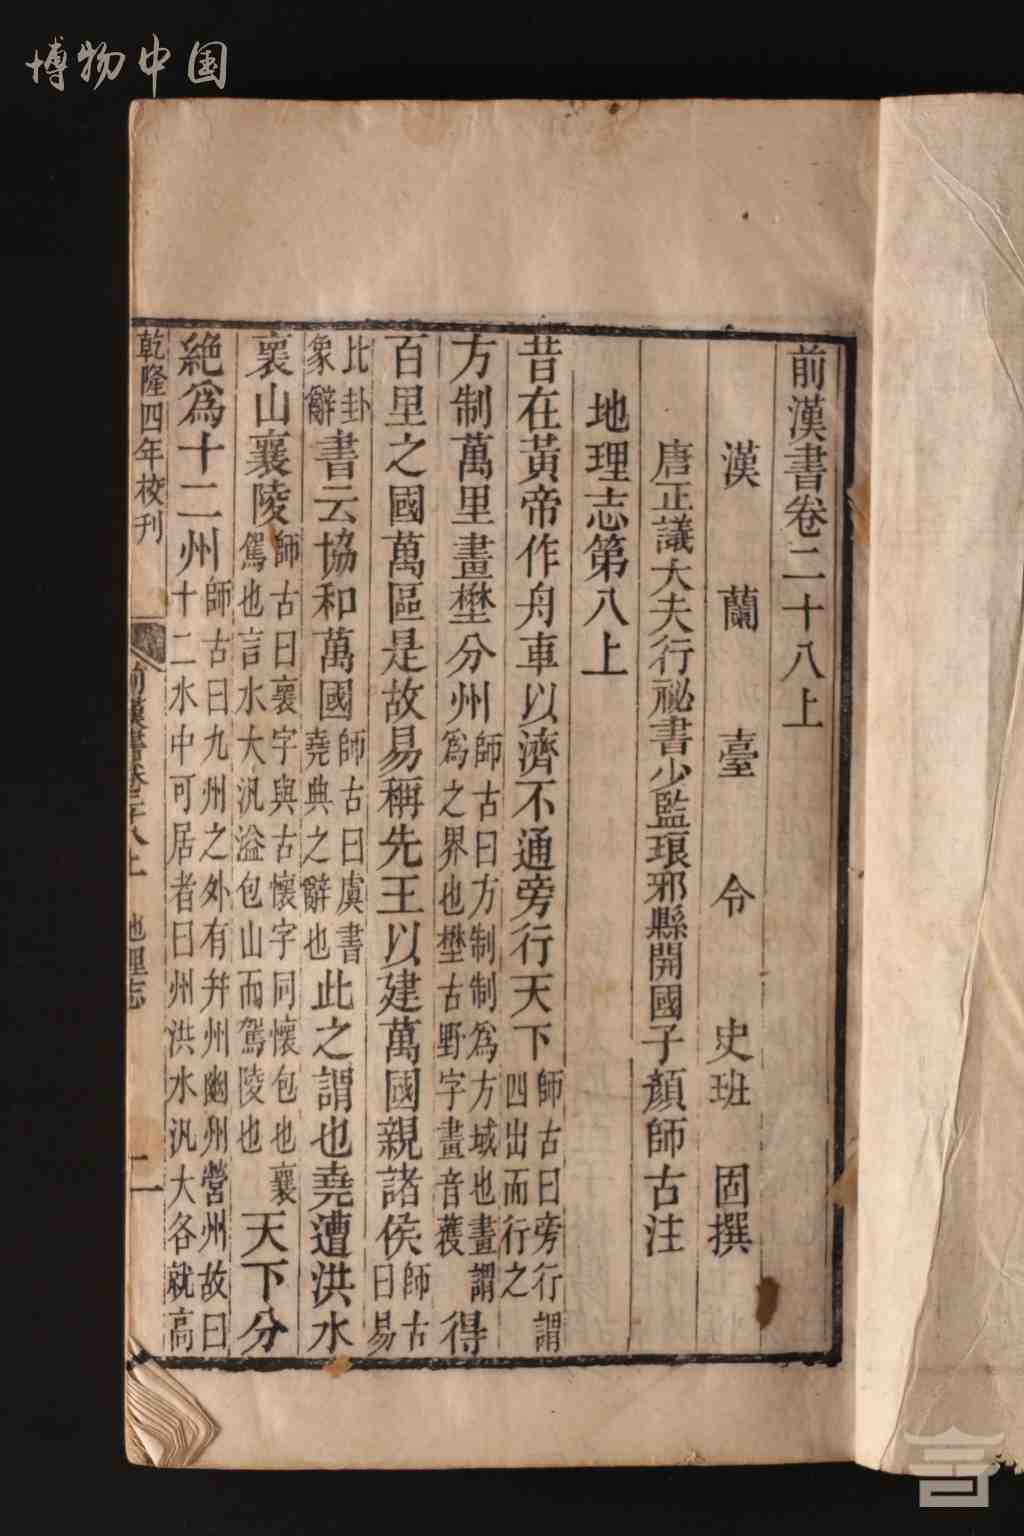 博物中国
前漢書卷二十八上
漢蘭臺令史班固撰
唐正議大夫行祕書少監琅邪縣開國子顏師古注
地理志第八上
昔在黃帝作舟車以濟不通旁行天下師古曰旁行謂四出而行之
方制萬里畫壄分州師古曰方制制爲方域也畫謂爲之界也壄古野字畫音獲得
百里之國萬區是故易稱先王以建萬國親諸侯師古曰易
比卦象辭書云協和萬國師古曰虞書堯典之辭也此之謂也堯遭洪水
襄山襄陵師古曰襄字與古懷字同懷包也襄駕也言水大汎溢包山而駕陵也天下分
絕爲十二州師古曰九州之外有幷州幽州營州故曰十二水中可居者曰州洪水汎大各就高
乾隆四年校刊
前漢書卷二十八上
地理志
二